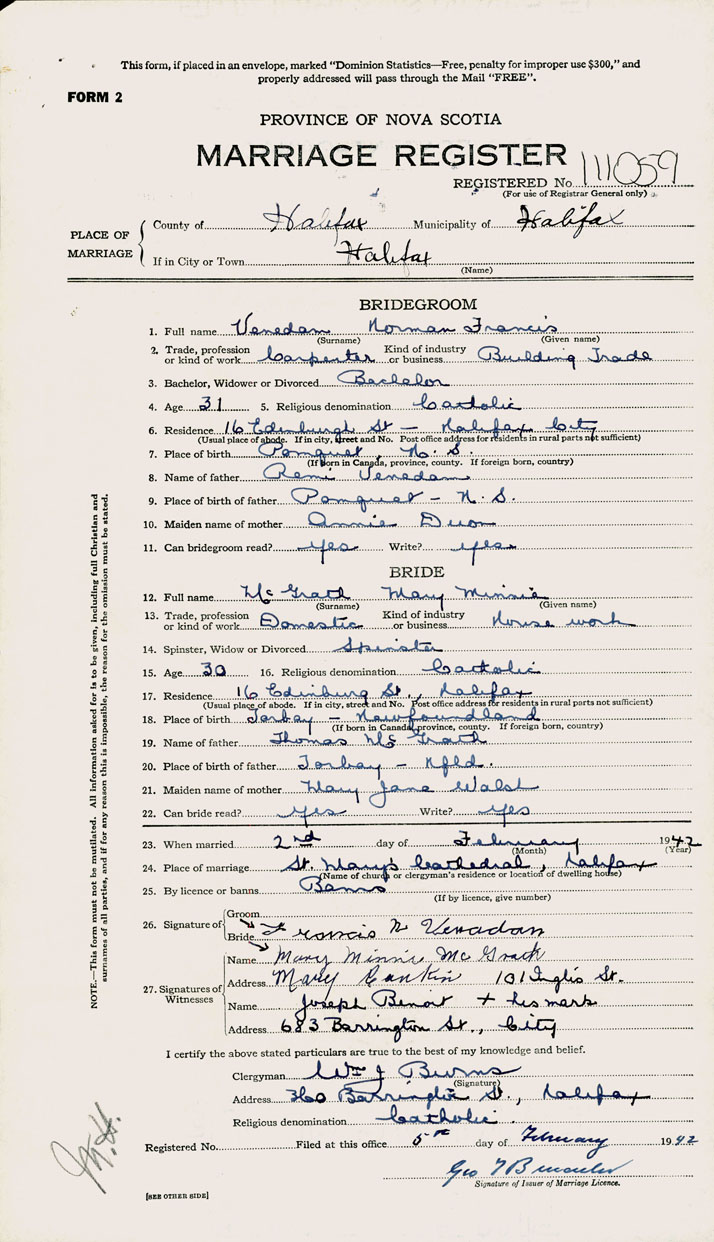 This form, if placed in an envelope, marked "Dominion Statistics—Free, penalty for improper use $300," and
properly addressed will pass through the Mail "FREE".
FORM 2
PROVINCE OF NOVA SCOTIA
MARRIAGE REGISTER
REGISTERED No. 111059
(For use of Registrar General only)
PLACE OF MARRIAGE
County of Halifax Municipality of Halifax
If in City or Town Halifax
(Name)
BRIDEGROOM
1. Full name Venedam Norman Francis
(Surname) (Given name)
2. Trade, profession or kind of work Carpenter Kind of industry or business Building Trade
3. Bachelor, Widower or Divorced Bachelor
4. Age 31 5. Religious denomination Catholic
6. Residence 16 Edinburgh St – Halifax City
(Usual place of abode. If in city, street and No. Post office address for residents in rural parts not sufficient)
7. Place of birth Pomquet, N. S.
(If born in Canada, province, county. If foreign born, country)
8. Name of father Remi Venedam
9. Place of birth of father Pomquet – N. S.
10. Maiden name of mother Annie Duon
11. Can bridegroom read? yes Write? yes
BRIDE
12. Full name McGrath Mary Minnie
(Surname) (Given name)
13. Trade, profession or kind of work Domestic Kind of industry or business House work
14. Spinster, Widow or Divorced Spinster
15. Age 30 16. Religious denomination Catholic
17. Residence 16 Edinburg St., Halifax
(Usual place of abode. If in city, street and No. Post office address for residents in rural parts not sufficient)
18. Place of birth Torbay – Newfoundland
(If born in Canada, province, county. If foreign born, country)
19. Name of father Thomas McGrath
20. Place of birth of father Torbay – Nfld.
21. Maiden name of mother Mary Jane Walsh
22. Can bride read? yes Write? yes
23. When married 2nd day of February 1942
(Month) (Year)
24. Place of marriage St. Mary's Cathedral, Halifax
(Name of church or clergyman's residence or location of dwelling house)
25. By licence or banns Banns
(If by licence, give number)
26. Signature of
Groom
Bride Francis N Venadam
27. Signatures of Witnesses
Name Mary Minnie McGrath
Address Mary Rankin 101 Inglis St.
Name Joseph Benoit + his mark
Address 683 Barrington St., City
I certify the above stated particulars are true to the best of my knowledge and belief.
Clergyman Wm J Burns
(Signature)
Address 360 Barrington St., Halifax
Religious denomination Catholic.
Registered No. Filed at this office 5th day of February 1942
Geo
Signature of Issuer of Marriage Licence.
[SEE OTHER SIDE]
NOTE.—This form must not be mutilated. All information asked for is to be given, including full Christian and
surnames of all parties, and if for any reason this is impossible, the reason for the omission must be stated.